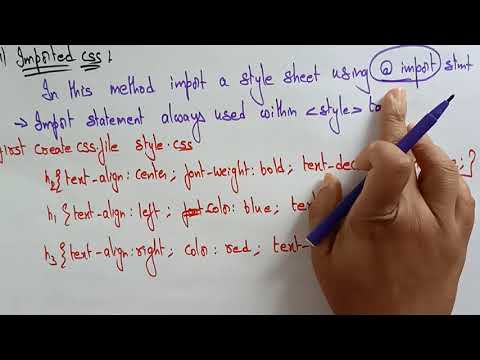 Imported css :
In this method import a style sheet using @ import stmt
→ Import statement always used within <style>
first create css file style.css
h2{text-align: center; font-weight: bold; ;}
h1 {text-align: left; color: blue;
h3{text-align: right; color: red;